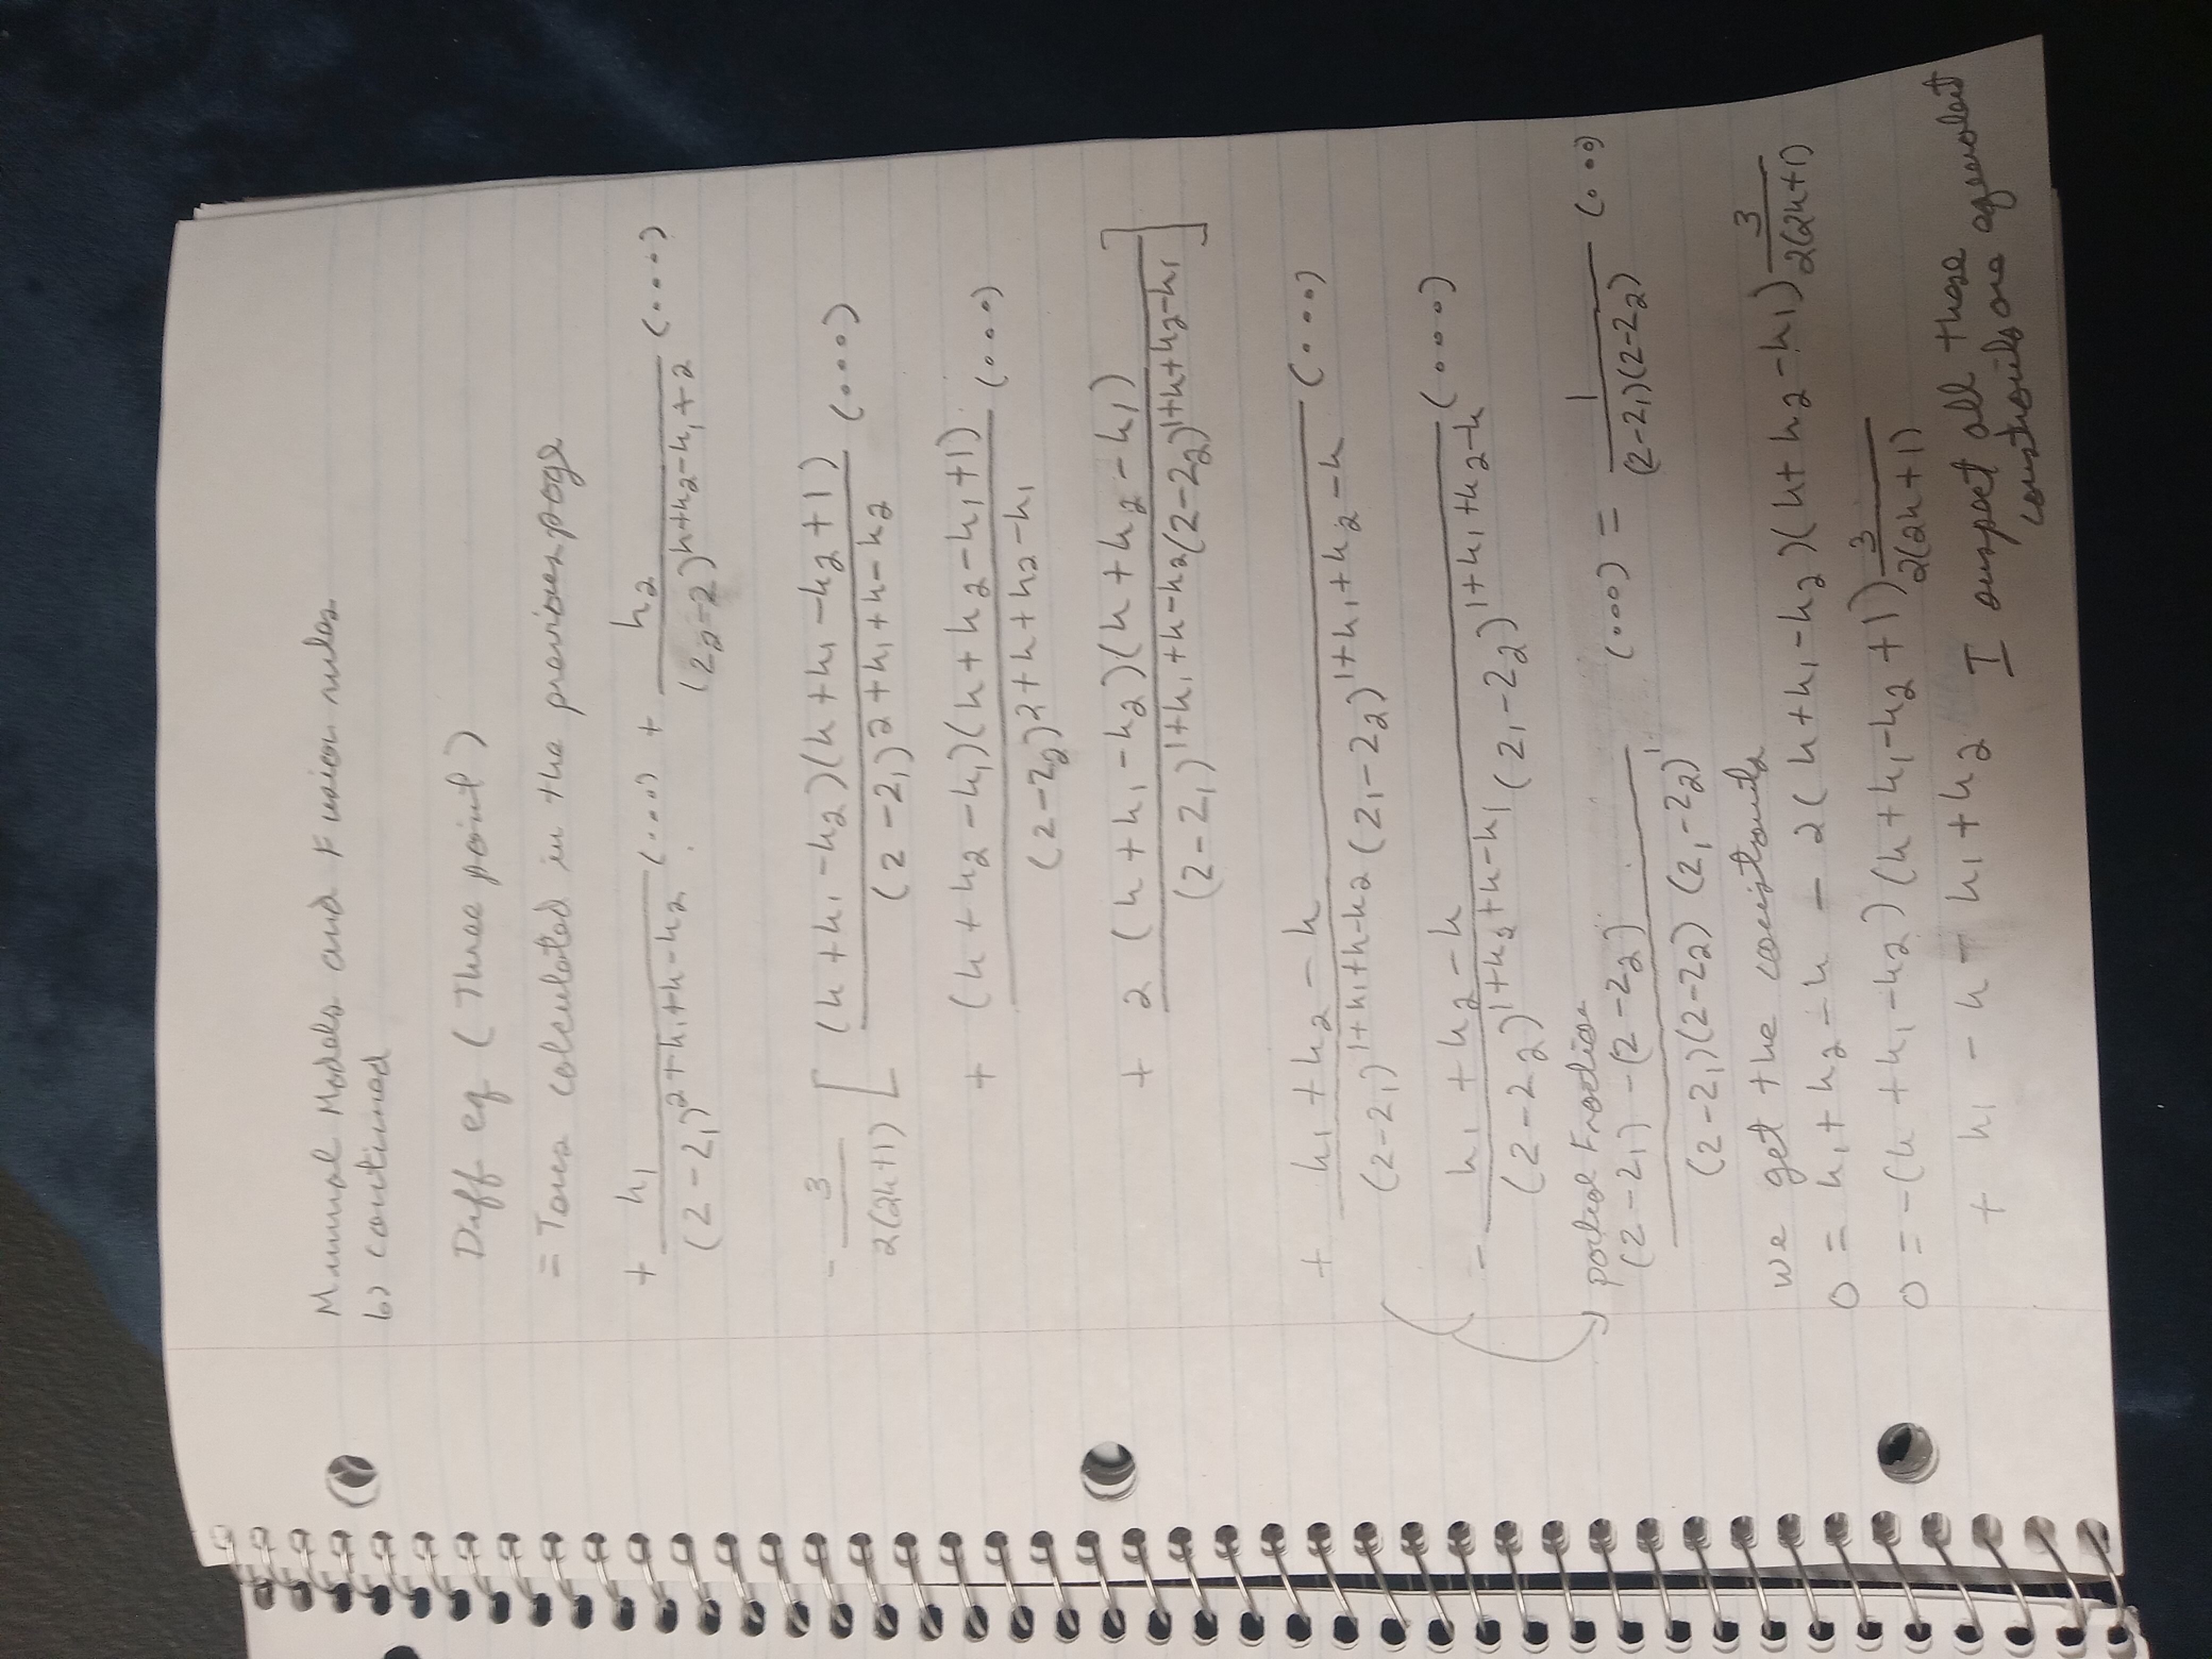 Minimal Models and Fusion rules
b) continued
Diff eq (Three point)
= Terms calculated in the previous page
+ h₁/(z-z₁)^(2+h₁+h-h₂) (...) + h₂/(z₂-z)^(h+h₂-h₁+2) (....)
- 3/(2(2h+1)) [ (h+h₁-h₂)(h+h₁-h₂+1)/(z-z₁)^(2+h₁+h-h₂) (...)
+ (h+h₂-h₁)(h+h₂-h₁+1)/(z-z₂)^(2+h+h₂-h₁) (...)
+ 2(h+h₁-h₂)(h+h₂-h₁)/((z-z₁)^(1+h₁+h-h₂)(z-z₂)^(1+h+h₂-h₁)) ]
+ (h₁+h₂-h)/((z-z₁)^(1+h₁+h-h₂)(z₁-z₂)^(1+h₁+h₂-h)) (...)
- (h₁+h₂-h)/((z-z₂)^(1+h₂+h-h₁)(z₁-z₂)^(1+h₁+h₂-h)) (....)
partial fraction
((z-z₁)-(z-z₂))/((z-z₁)(z-z₂)(z₁-z₂)) (...) = 1/((z-z₁)(z-z₂)) (...)
We get the constraints
0 = h₁+h₂-h - 2(h+h₁-h₂)(h+h₂-h₁) 3/(2(2h+1))
0 = -(h+h₁-h₂)(h+h₁-h₂+1) 3/(2(2h+1))
+ h₁ - h - h₁ + h₂ I suspect all these
constraints are equivalent